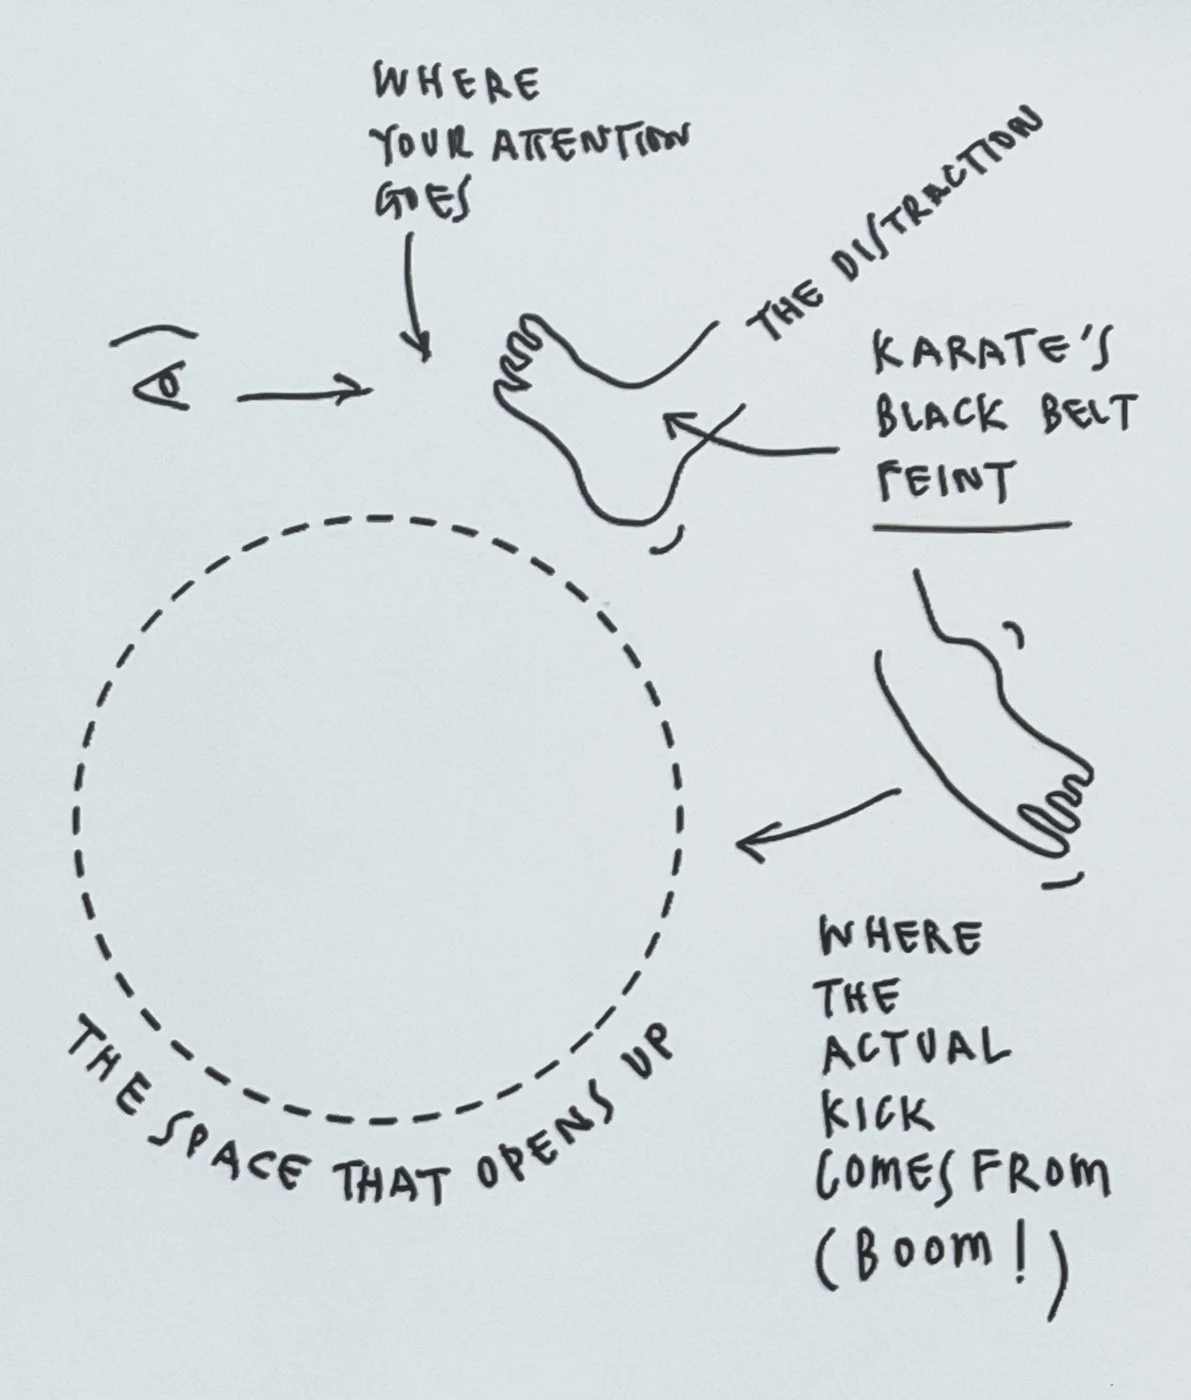 WHERE
YOUR ATTENTION
GOES
THE DISTRACTION
KARATE'S
BLACK BELT
FEINT
THE SPACE THAT OPENS UP
WHERE
THE
ACTUAL
KICK
COMES FROM
(BOOM!)